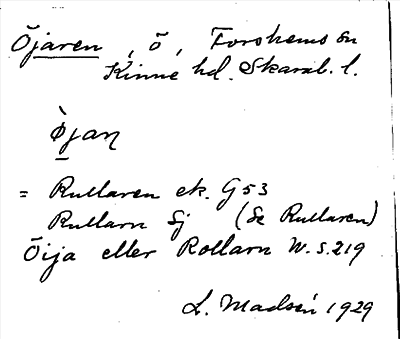 Öjaren, ö, Forshems sn
Kinne hd. Skarab. l.
ø̀jaɲ
= Rullaren ek. G53
Rullarn Sj (Se Rullaren)
Öija eller Rollarn W. s. 219
L. Madsén 1929